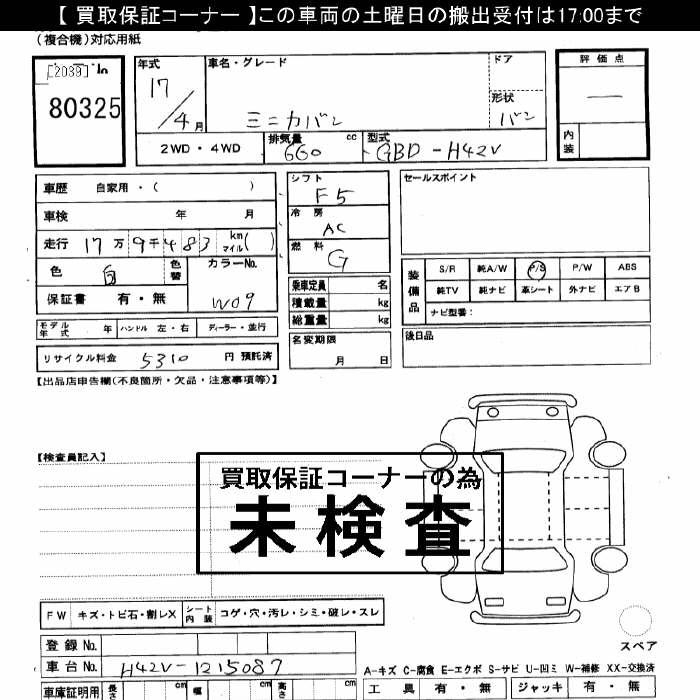 【 買取保証コーナー 】この車両の土曜日の搬出受付は17:00まで
(複合機)対応用紙
[2089] No
80325
年式 車名・グレード ドア 評価点
17/4月 ミニカバン 形状 バン 一
2WD・4WD 排気量 660 cc 型式 GBD-H42V 内装
車歴 自家用・( )
車検 年 月
走行 17万9千483 km マイル( )
色 白 色替 カラーNo. W09
保証書 有・無
モデル年式 年 ハンドル 左・右 ディーラー・並行
リサイクル料金 5310 円 預託済
シフト F5
冷房 AC
燃料 G
乗車定員 名
積載量 kg
総重量 kg
名変期限 月 日
セールスポイント
装備品 S/R 純A/W P/S P/W ABS
純TV 純ナビ 革シート 外ナビ エアB
ナビ型番:
後日品
【出品店申告欄(不良箇所・欠品・注意事項等)】
【検査員記入】
買取保証コーナーの為
未検査
FW キズ・トビ石・割レX シート内装 コゲ・穴・汚レ・シミ・破レ・スレ
スペア
登録 No.
車台 No. H42V-1215087
A-キズ C-腐食 E-エクボ S-サビ U-凹ミ W-補修 XX-交換済
車庫証明用 長さ cm 幅 cm 高さ cm
工具 有・無 ジャッキ 有・無